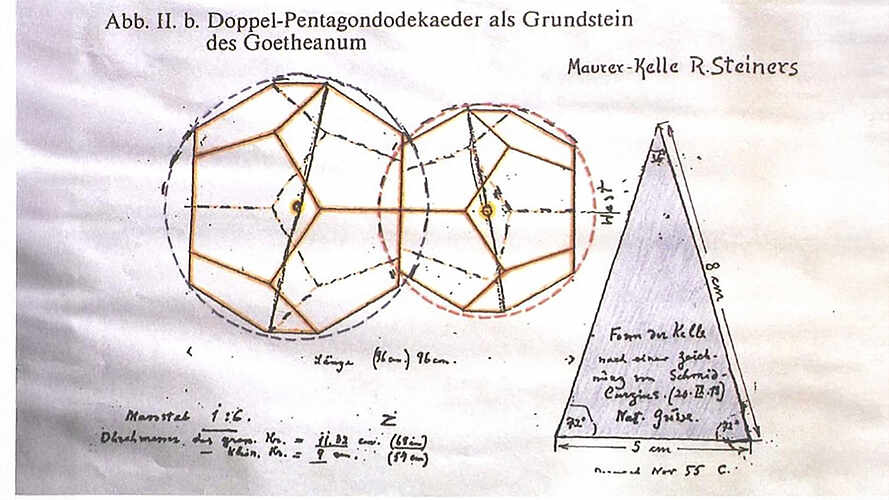 Abb. II. b. Doppel-Pentagondodekaeder als Grundstein
des Goetheanum
Maurer-Kelle R.Steiners
36
West
8 cm
Form der Kelle
nach einer Zeich-
nung von Schmid-
Curzius. (20.IX.13)
Nat. Grösse.
72°
72°
5 cm
Länge (96cm) 96cm.
Masstab 1:6.
Durchmesser des gross. Kr. = cm.
klein. Kr. = 9 cm. (54 cm)
Nov 55 C.